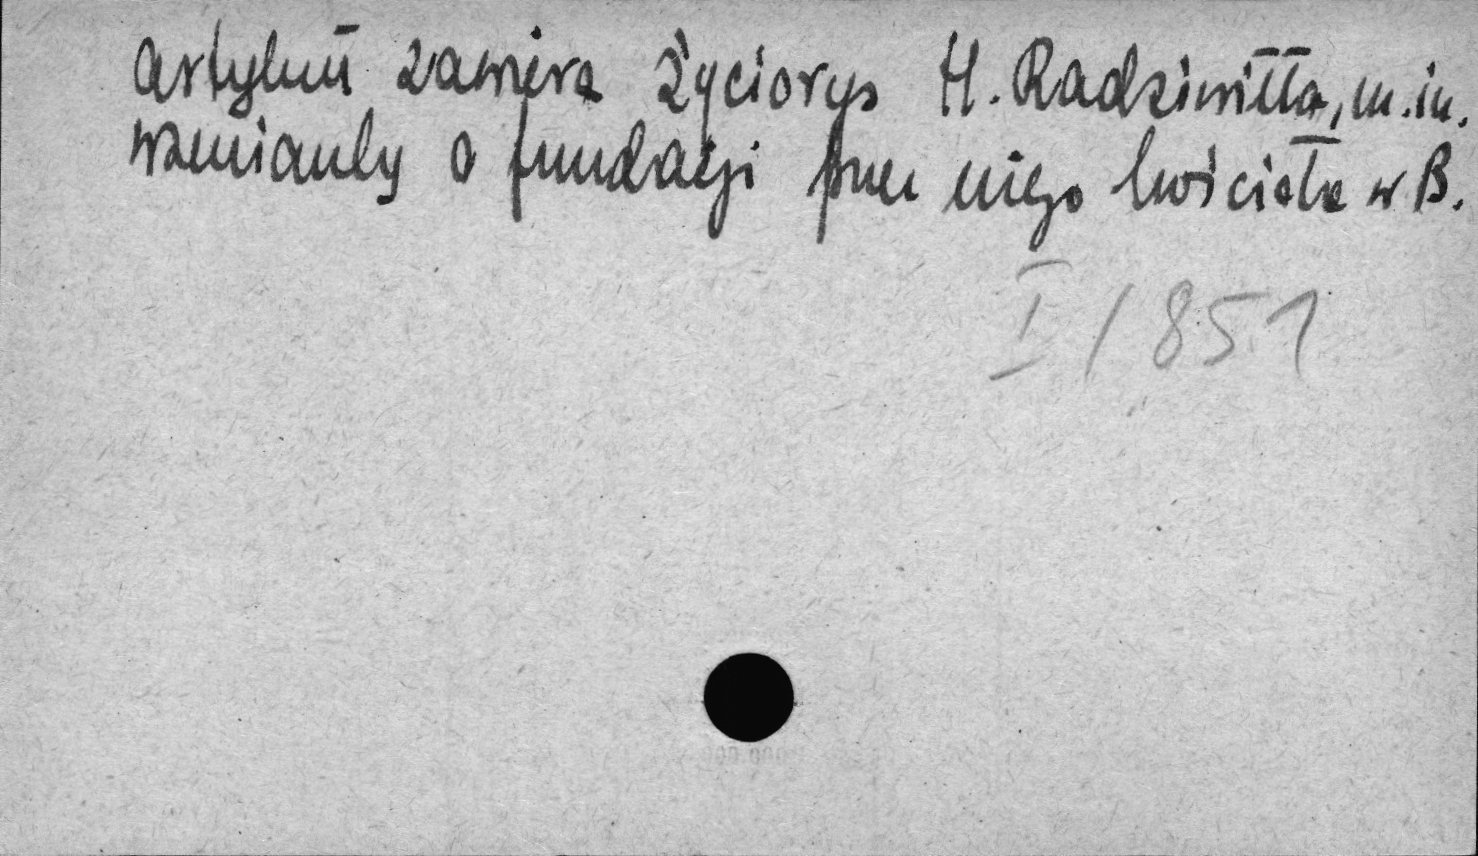 Artykuł zawiera życiorys H. Radziwiłła, m.in.
wzmianki o fundacji przez niego kościoła w B.
I/851